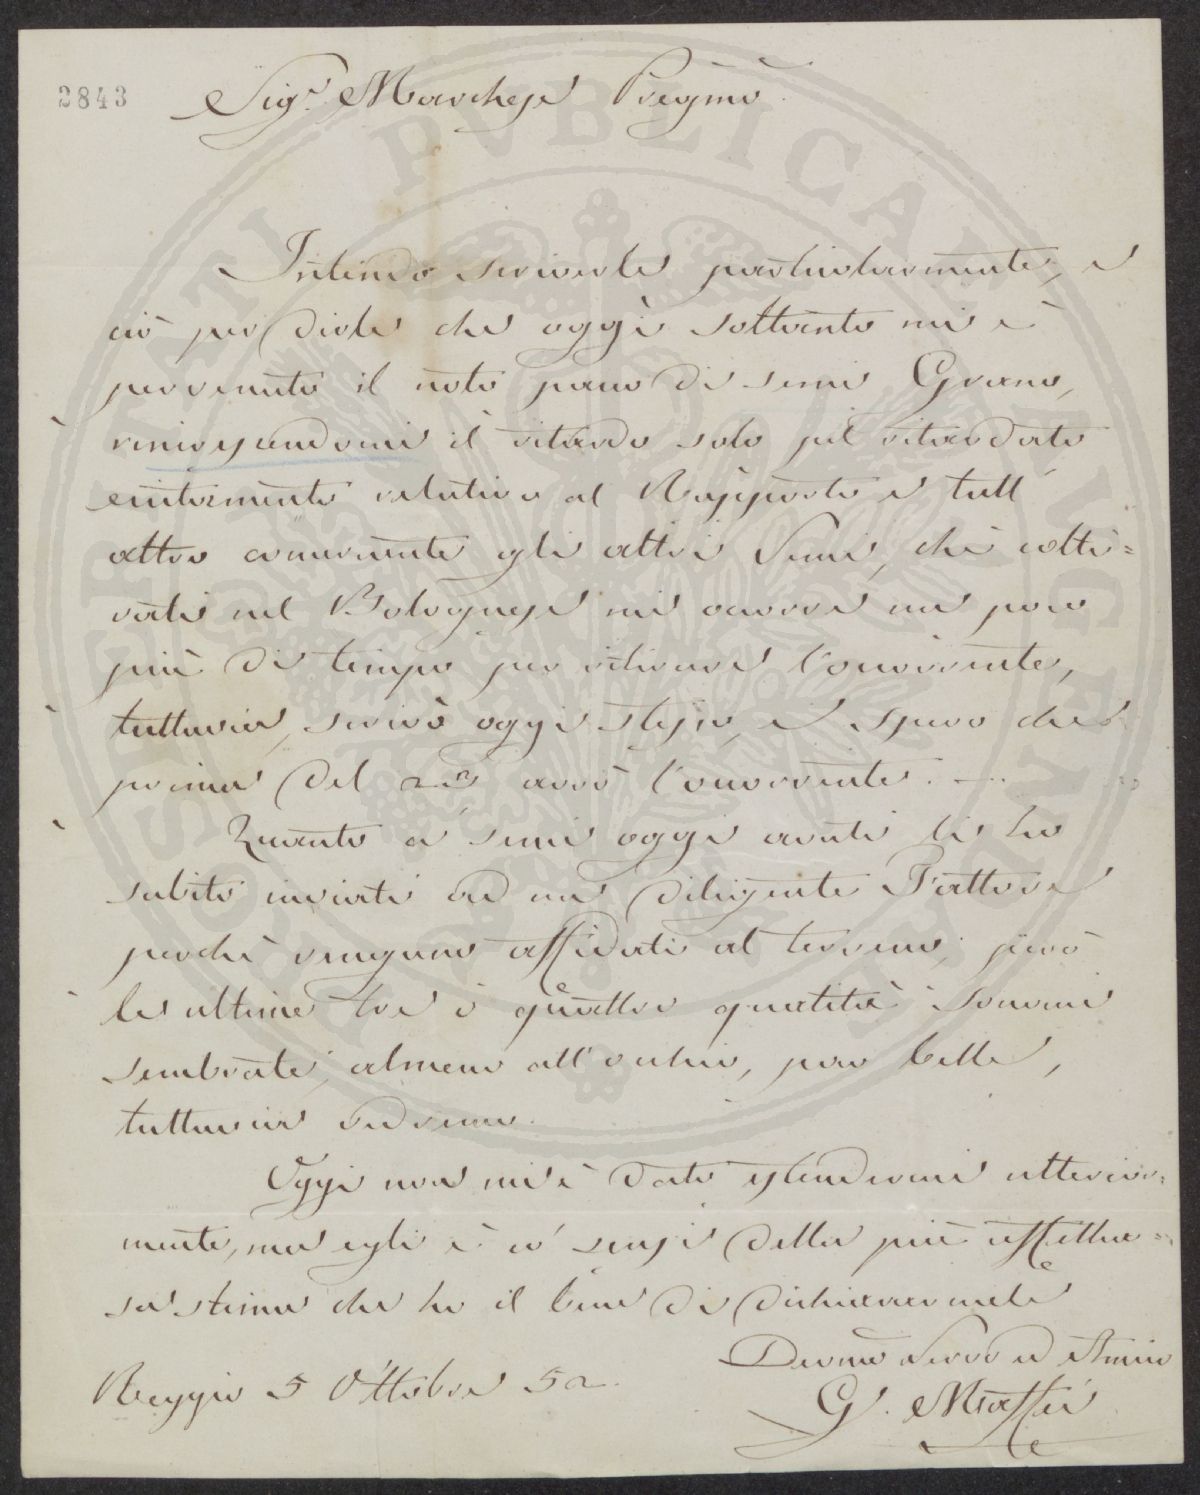 2843
Sig.r Marchese Preg.mo
Intendo scriverle particolarmente, e
ciò per dirle che oggi soltanto mi è
pervenuto il noto pacco di semi Grano,
rincrescendomi il ritardo solo pel ritardato
esaurimento relativo al Rapporto e tutt'
altro concernente gli altri Semi, che colti=
vati nel Bolognese mi occorre un poco
più di tempo per ritirare l'occorrente,
tuttavia, scrivo oggi stesso, e spero che
prima del 20 avrò l'occorrente. —
Quanto a' semi oggi avuti li ho
subito inviati ad un diligente Fattore
perchè vengano affidati al terreno, però
le ultime tre o quattro quantità sonomi
sembrate, almeno all'occhio, poco belle,
tuttavia vedremo.
Oggi non mi è dato estendermi ulterior=
mente, ma egli è a' sensi della più affettuo=
sa stima che ho il bene di dichiararmele
Dev.mo Servo ed Amico
Reggio 5 Ottobre 52.
G. Maffei
SIGILLUM PUBLICAE